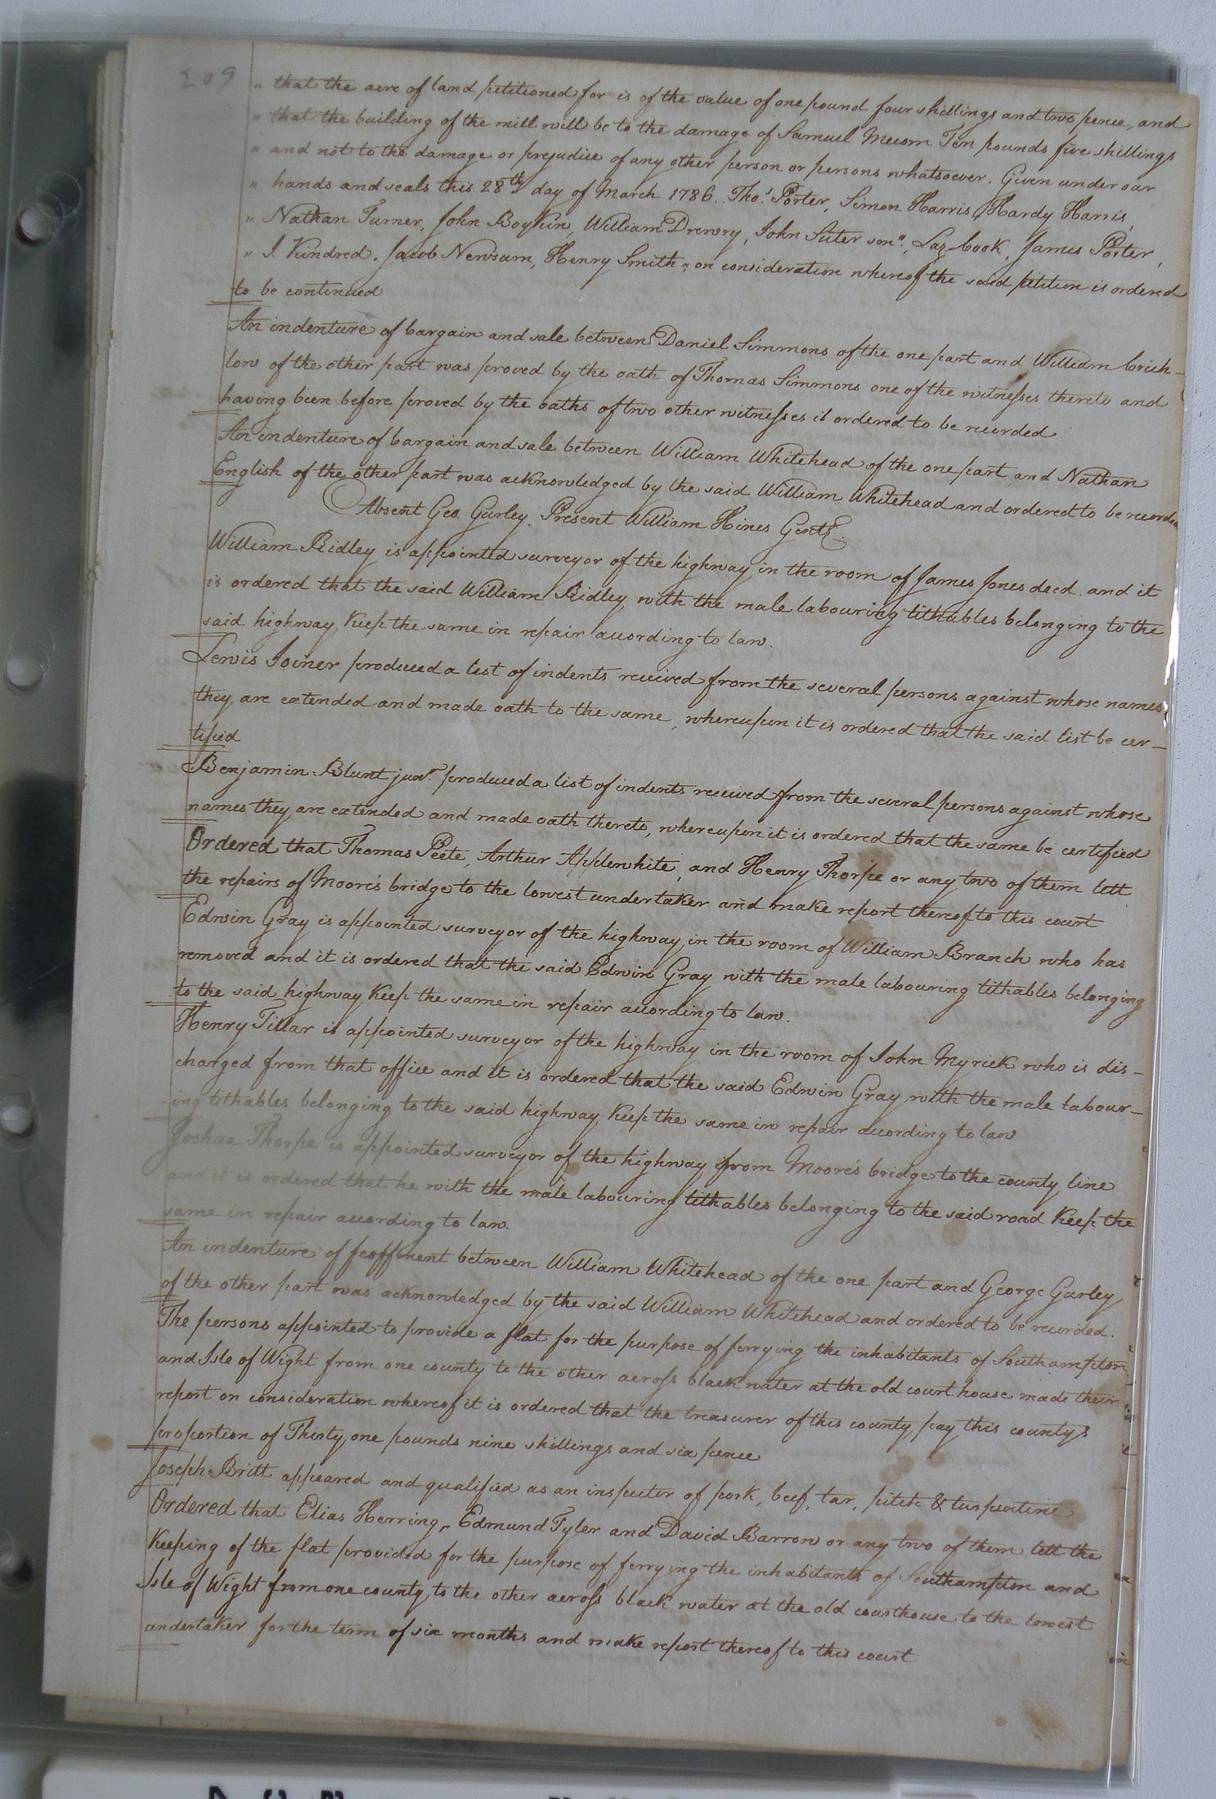 209
" that the acre of land petitioned for is of the value of one pound four shillings and two pence, and
" that the building of the mill will be to the damage of Samuel Meacom Ten pounds five shillings
" and not to the damage or prejudice of any other person or persons whatsoever. Given under our
" hands and seals this 28th day of March 1786. Thos. Porter, Simon Harris, Hardy Harris,
" Nathan Turner, John Boykin, William Drewry, John Suter senr., Laz. Cook, James Porter,
" J. Kindred, Jacob Newsum, Henry Smith," on consideration whereof the said petition is ordered
to be continued
An indenture of bargain and sale between Daniel Simmons of the one part and William Crich-
low of the other part was proved by the oath of Thomas Simmons one of the witnesses thereto and
having been before proved by the oaths of two other witnesses is ordered to be recorded
An indenture of bargain and sale between William Whitehead of the one part and Nathan
English of the other part was acknowledged by the said William Whitehead and ordered to be recorded
Absent Geo. Gurley. Present William Hines Gent.
William Ridley is appointed surveyor of the highway in the room of James Jones decd. and it
is ordered that the said William Ridley with the male labouring tithables belonging to the
said highway keep the same in repair according to law.
Lewis Joiner produced a list of indents received from the several persons against whose names
they are extended and made oath to the same, whereupon it is ordered that the said list be cer-
tified
Benjamin Blunt junr. produced a list of indents received from the several persons against whose
names they are extended and made oath thereto, whereupon it is ordered that the same be certified
Ordered that Thomas Peete, Arthur Applewhite, and Henry Thorpe or any two of them lett
the repairs of Moore's bridge to the lowest undertaker and make report thereof to this court
Edwin Gray is appointed surveyor of the highway in the room of William Branch who has
removed and it is ordered that the said Edwin Gray with the male labouring tithables belonging
to the said highway keep the same in repair according to law.
Henry Tillar is appointed surveyor of the highway in the room of John Myrick who is dis-
charged from that office and it is ordered that the said Edwin Gray with the male labour-
ing tithables belonging to the said highway keep the same in repair according to law
Joshua Thorpe is appointed surveyor of the highway from Moore's bridge to the county line
and it is ordered that he with the male labouring tithables belonging to the said road keep the
same in repair according to law.
An indenture of feoffment between William Whitehead of the one part and George Gurley
of the other part was acknowledged by the said William Whitehead and ordered to be recorded.
The persons appointed to provide a flat for the purpose of ferrying the inhabitants of Southampton
and Isle of Wight from one county to the other across black water at the old court house made their
report on consideration whereof it is ordered that the treasurer of this county pay this county's
proportion of Thirty one pounds nine shillings and six pence
Joseph Britt appeared and qualified as an inspector of pork, beef, tar, pitch & turpentine
Ordered that Elias Herring, Edmund Tyler and David Barrow or any two of them lett the
keeping of the flat provided for the purpose of ferrying the inhabitants of Southampton and
Isle of Wight from one county to the other across black water at the old courthouse to the lowest
undertaker for the term of six months and make report thereof to this court